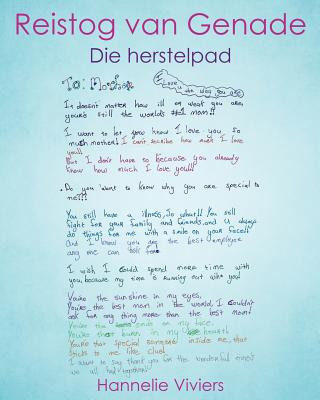 Reistog van Genade
Die herstelpad
To: Mother
I Love u the way you are
It doesn't matter how ill or weak you are,
you're still the world's #1 mom!!
I want to let you know I love you so
much mother! I can't describe how much I love
you!!
But I don't have to because you already
know how much I love you!!
Do you want to know why you are special to
me???
You still have a illness, So what!! You still
fight for your family and friends and is always
do things for me with a smile on your face!!
And I know you are the best
any me can
I wish I could spend more time with
you, because my time is running out with you!
You're the sunshine in my eyes,
You're the best mom in the world, I couldn't
ask for any thing more than the best mom!
You're the on my face,
You're that burn in my hearth
You're that special someone inside me, that
sticks to me like clue!
I want to say thank you for the wonderful times
we all had together!
Hannelie Viviers